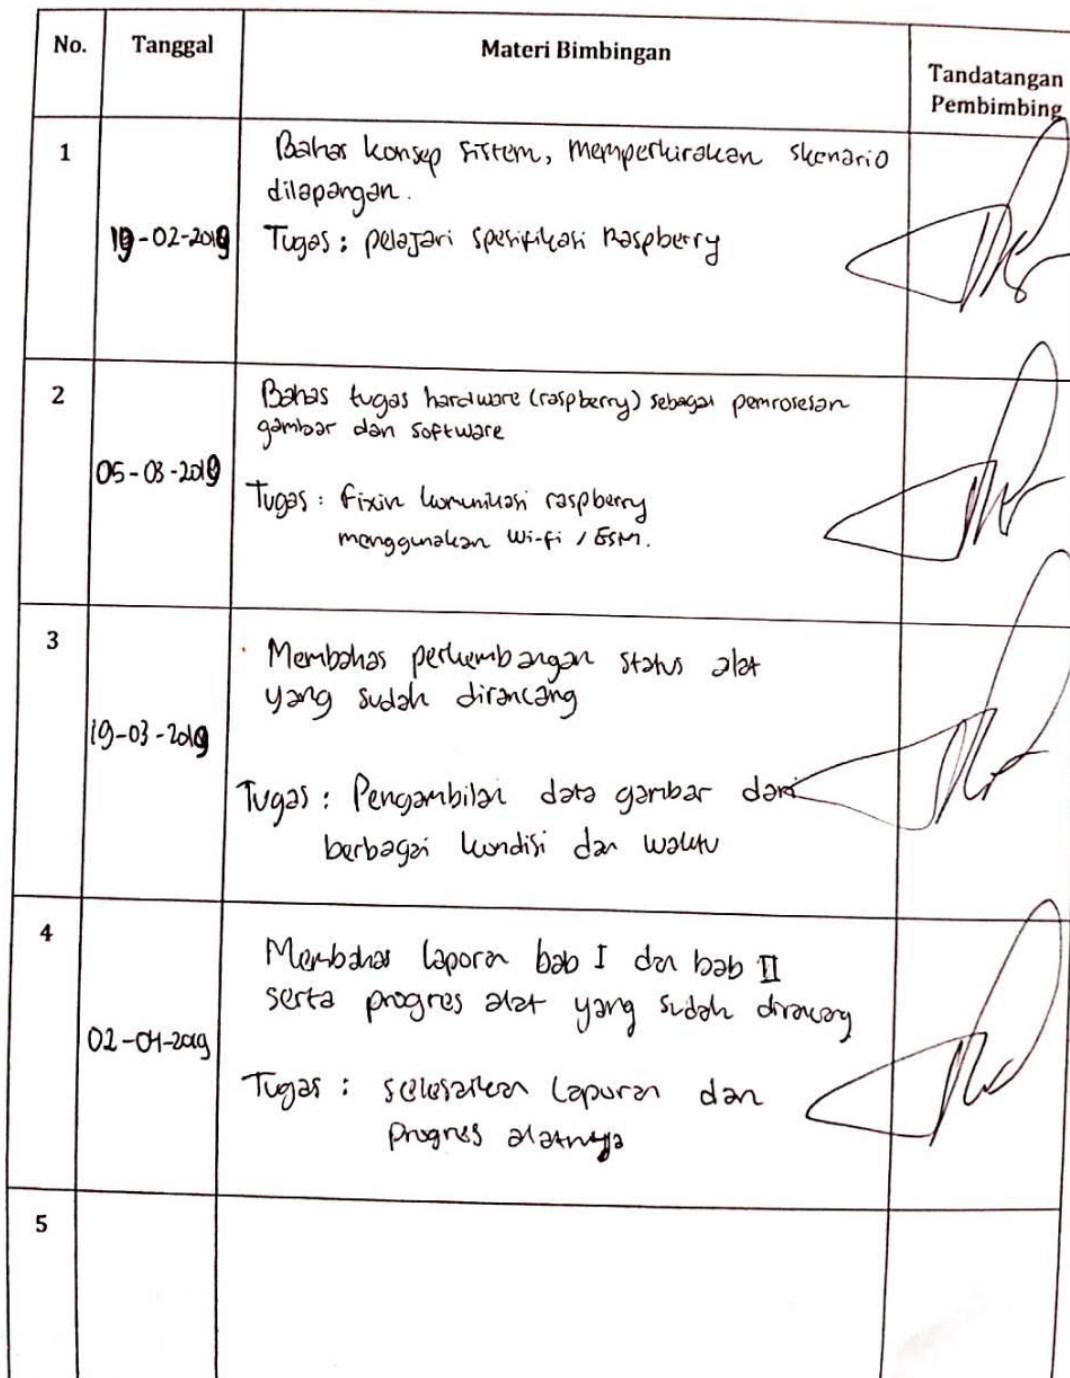 No. Tanggal Materi Bimbingan Tandatangan
Pembimbing
1
Bahas konsep sistem, memperkirakan skenario
dilapangan.
19-02-2019
Tugas : pelajari spesifikasi Raspberry
2
Bahas tugas hardware (raspberry) sebagai pemrosesan
gambar dan software
05-03-2019
Tugas : fixin komunikasi raspberry
menggunakan Wi-fi / GSM.
3
Membahas perkembangan status alat
yang sudah dirancang
19-03-2019
Tugas : Pengambilan data gambar dari
berbagai kondisi dan waktu
4
Membahas laporan bab I dan bab II
serta progres alat yang sudah dirancang
02-04-2019
Tugas : selesaikan laporan dan
progres alatnya
5